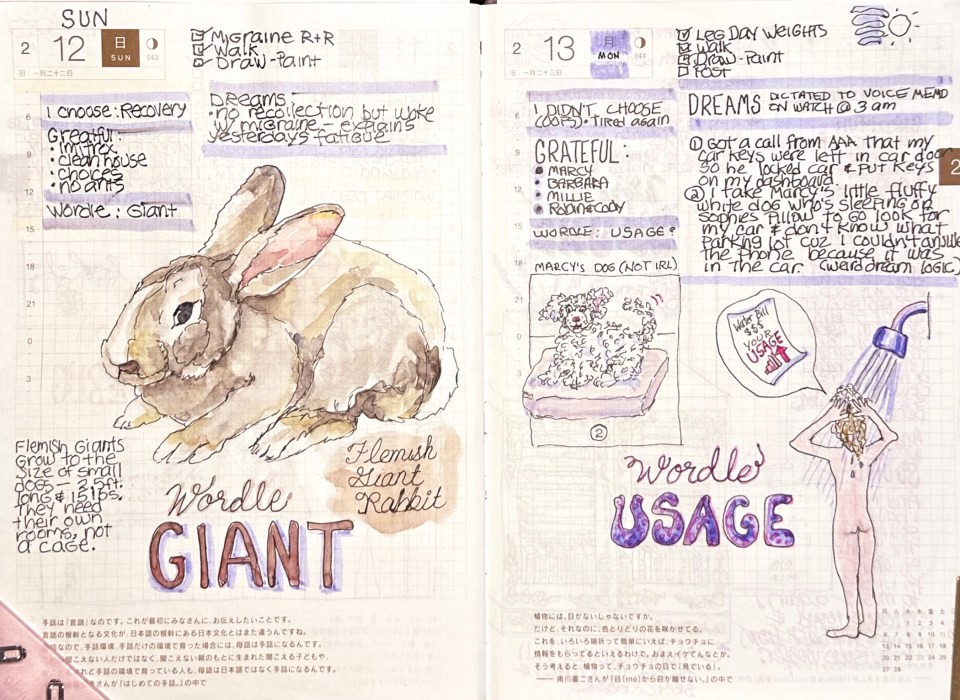 SUN
2 12 日 SUN 043
旧 一月二十二日
☑ MIGRAINE R+R
☑ WALK
☑ DRAW-PAINT
I choose: Recovery
Greatful:
• imitrex
• clean house
• choices
• no ants
Wordle: Giant
Dreams-
• no recollection but woke
w/ migraine - explains
yesterdays fatigue
6
9
12
15
18
21
0
3
Flemish Giants
Grow to the
size of small
dogs — 2.5ft.
long & 15 lbs.
They need
their own
rooms, not
a cage.
Flemish
Giant
Rabbit
Wordle
GIANT
手話は「言語」なのです。これが最初にみなさんに、お伝えしたいことです。
言語の根幹となる文化が、日本語の根幹にある日本文化とはまた違うんですね。
なので、手話環境、手話だけの環境で育った場合には、母語は手話になるんです。
聞こえない人だけではなく、聞こえない親のもとに生まれた聞こえる子どもや、
れど手話の環境で育っている人も、母語は日本語ではなく手話になるんです。
さんが『はじめての手話。』の中で
2 13 月 MON 044
旧 一月二十三日
☑ LEG DAY WEIGHTS
☑ WALK
☑ DRAW-PAINT
☐ POST
I DIDN'T CHOOSE
(OOPS) • TIRED again
GRATEFUL:
• MARCY
• BARBARA
• MILLIE
• ROBIN & CODY
WORDLE: USAGE
DREAMS DICTATED TO VOICE MEMO
ON WATCH @ 3 am
① GOT a call from AAA THAT my
car keys were left in car door
SO he locked car & PUT KEYS
on my dashboard
② I take Marcy's little fluffy
white dog who's sleeping on
Sophies pillow to go look for
my car & don't know what
parking lot cuz I couldn't answer
The phone because it was
in the car. (weird dream LOGIC)
6
9
12
15
18
21
0
3
MARCY'S DOG (NOT IRL)
②
Water Bill
$$$
YOUR
USAGE
Wordle
USAGE
植物には、目がないじゃないですか。
だけど、それなのに、色とりどりの花を咲かせてる。
これを、いろいろ端折って簡単にいえば、チョウチョに
情報をもらってるといえるわけで。おまえイケてんなとか。
そう考えると、植物って、チョウチョの目で「見ている」。
—— 南川憲二さんが『目[mé]から目が離せない。』の中で
2